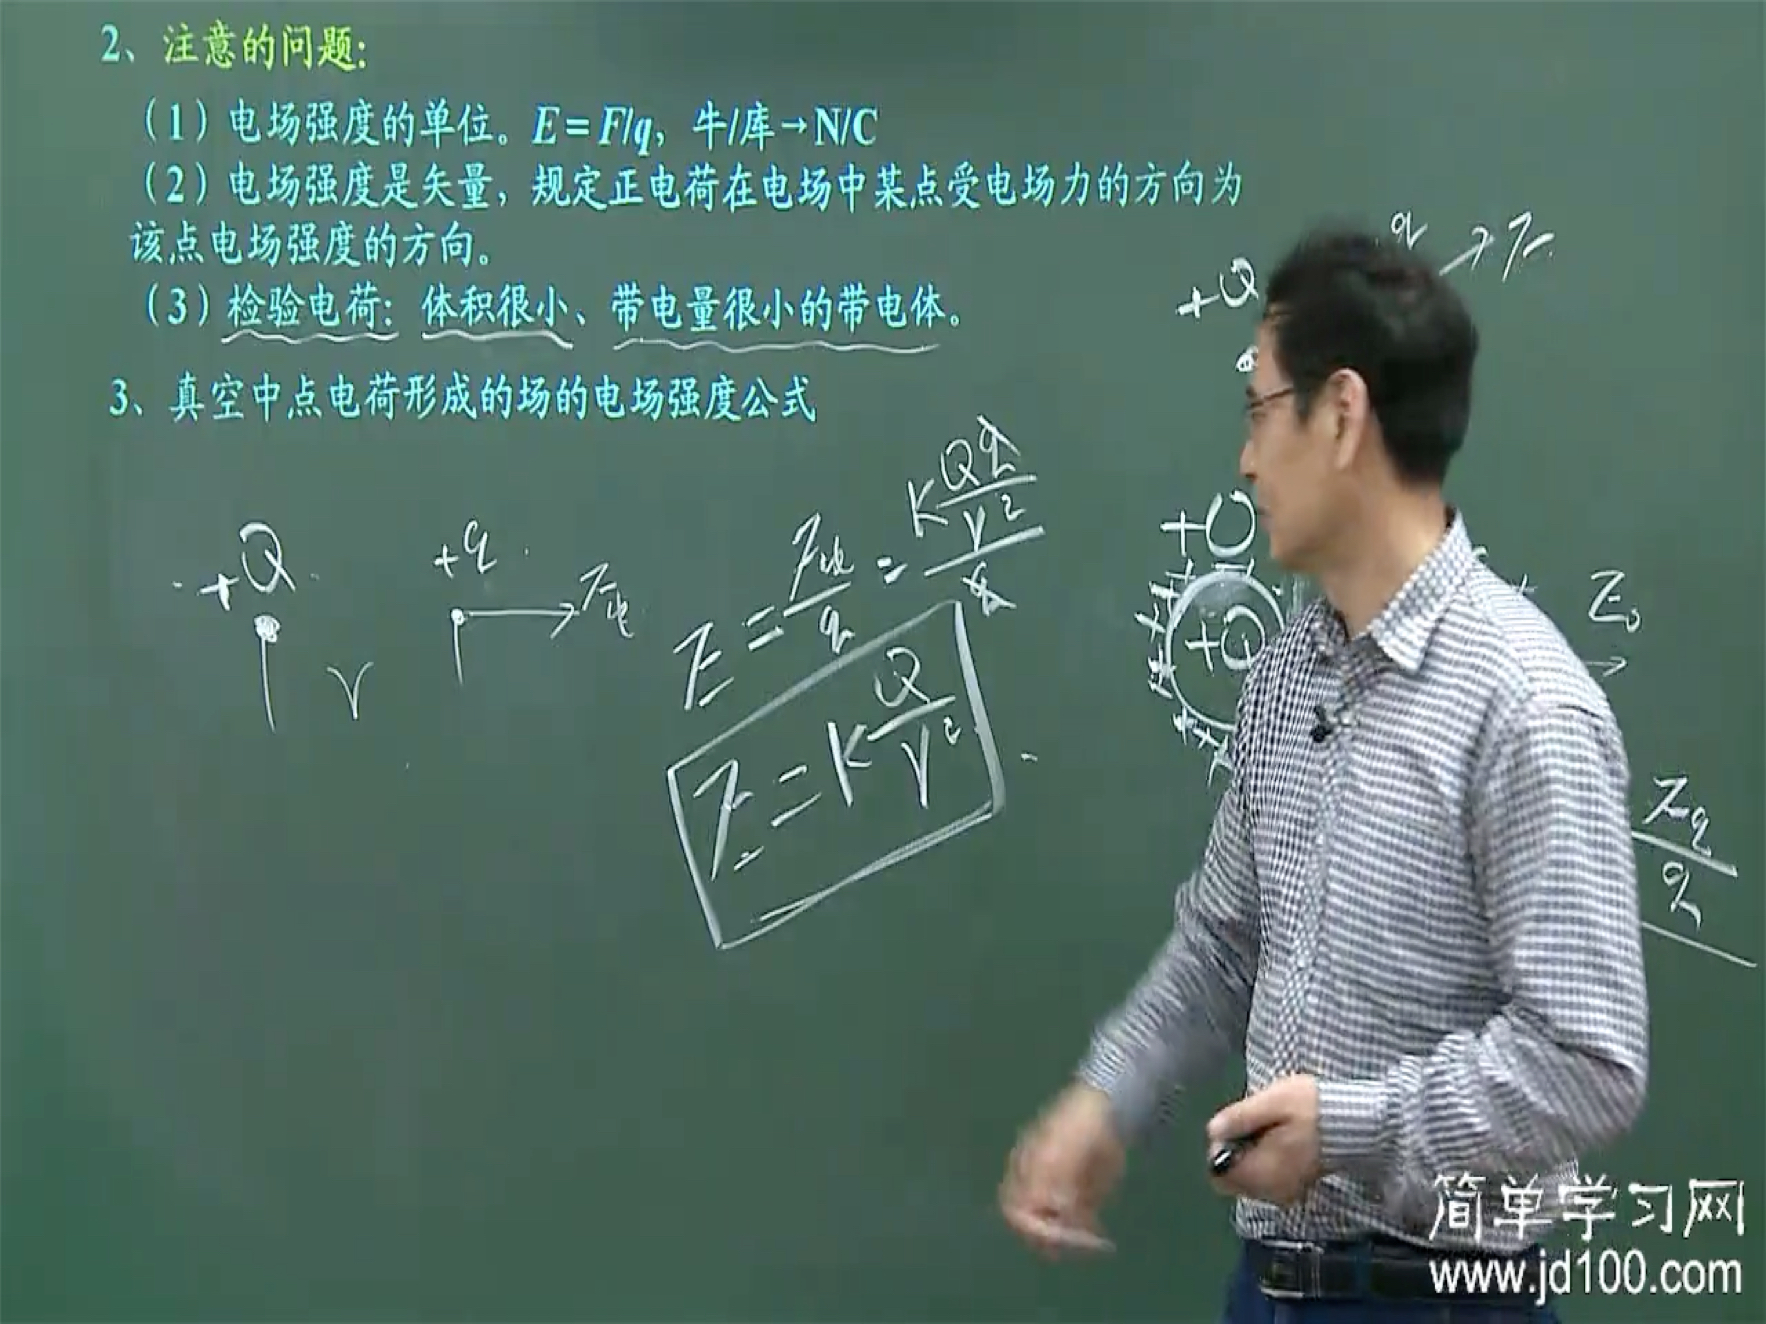 2、注意的问题:
(1)电场强度的单位。E=F/q, 牛/库→N/C
(2)电场强度是矢量,规定正电荷在电场中某点受电场力的方向为
该点电场强度的方向。
(3)检验电荷:体积很小、带电量很小的带电体。
3、真空中点电荷形成的场的电场强度公式
+Q
+q
F电
r
E = F电/q = K Qq/r² / q
E = K Q/r²
q → F
+Q
+C
+Q
E₀
简单学习网
www.jd100.com